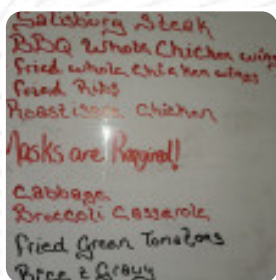 Salisburg Steak
BBQ Whole Chicken wings
fried whole chicken wings
fried Ribs
Roastisore Chicken
Masks are Required!
Cabbage
Broccoli Casserole
Fried Green Tomatoes
Rice & Gravy